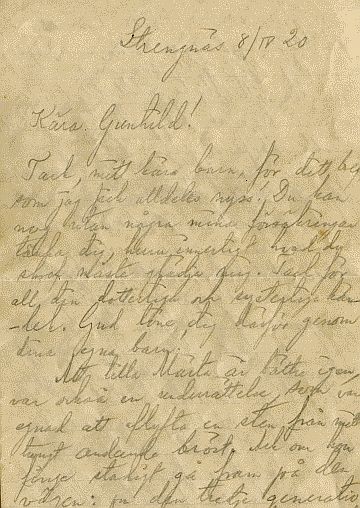 Strengnäs 8/IV 20
Kära Gunhild!
Tack, mitt kära barn, för ditt bref
som jag fick alldeles nyss! Du kan
nog utan några mina försäkringar
tänka dig, huru innerligt
måste glädja mig. Tack för
all din dotterliga och systerliga
Gud löne dig därför genom
dina egna barn.
Att lilla Märta är bättre igen,
var också en underrättelse, som var
egnad att aflyfta en sten från mitt
tungt andande bröst. Ack om hon
finge stadigt gå fram på den
vägen: on den tredje generatio